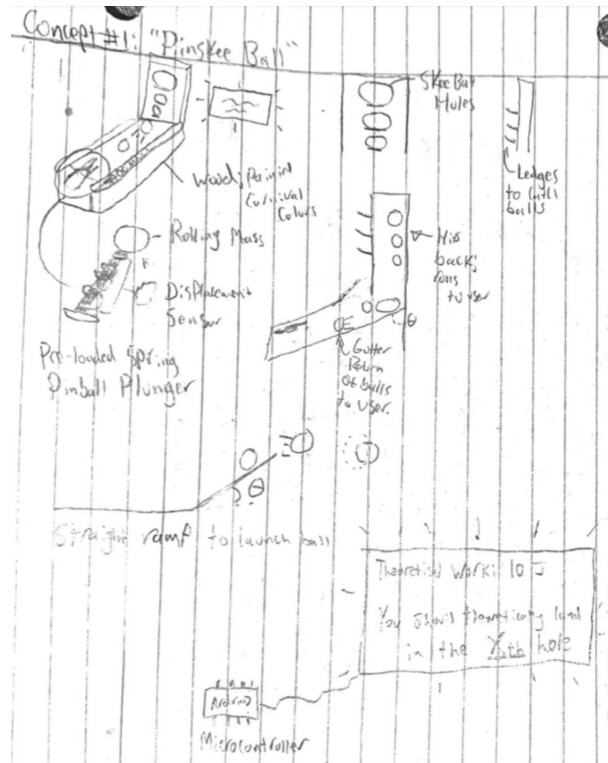 Concept #1: "Pinskee Ball"
Skee Ball
Holes
Ledges
to catch
balls
Wood; Painted
Carnival
Colors
Rolling Mass
K
Displacement
Sensor
Hits
back;
rolls
to user
θ
Pre-loaded Spring
Pinball Plunger
Gutter
Return
of balls
to user.
θ
Straight ramp to launch ball
Theoretical Work: 10 J
You should theoretically land
in the Xth hole
Arduino
Microcontroller